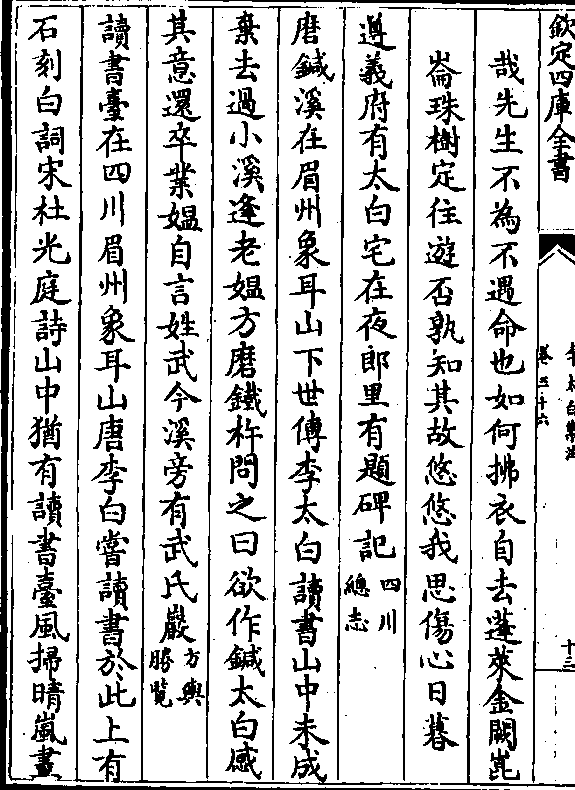 欽定四庫全書
卷三十六
十三
哉先生不為不遇命也如何拂衣自去蓬萊金闕崑
崙珠樹定往遊否孰知其故悠悠我思傷心日暮
遵義府有太白宅在夜郎里有題碑記四川總志
磨鍼溪在眉州象耳山下世傳李太白讀書山中未成
棄去過小溪逢老媪方磨鐵杵問之曰欲作鍼太白感
其意還卒業媪自言姓武今溪旁有武氏巖方輿勝覽
讀書臺在四川眉州象耳山唐李白嘗讀書於此上有
石刻白詞宋杜光庭詩山中猶有讀書臺風掃晴嵐畫